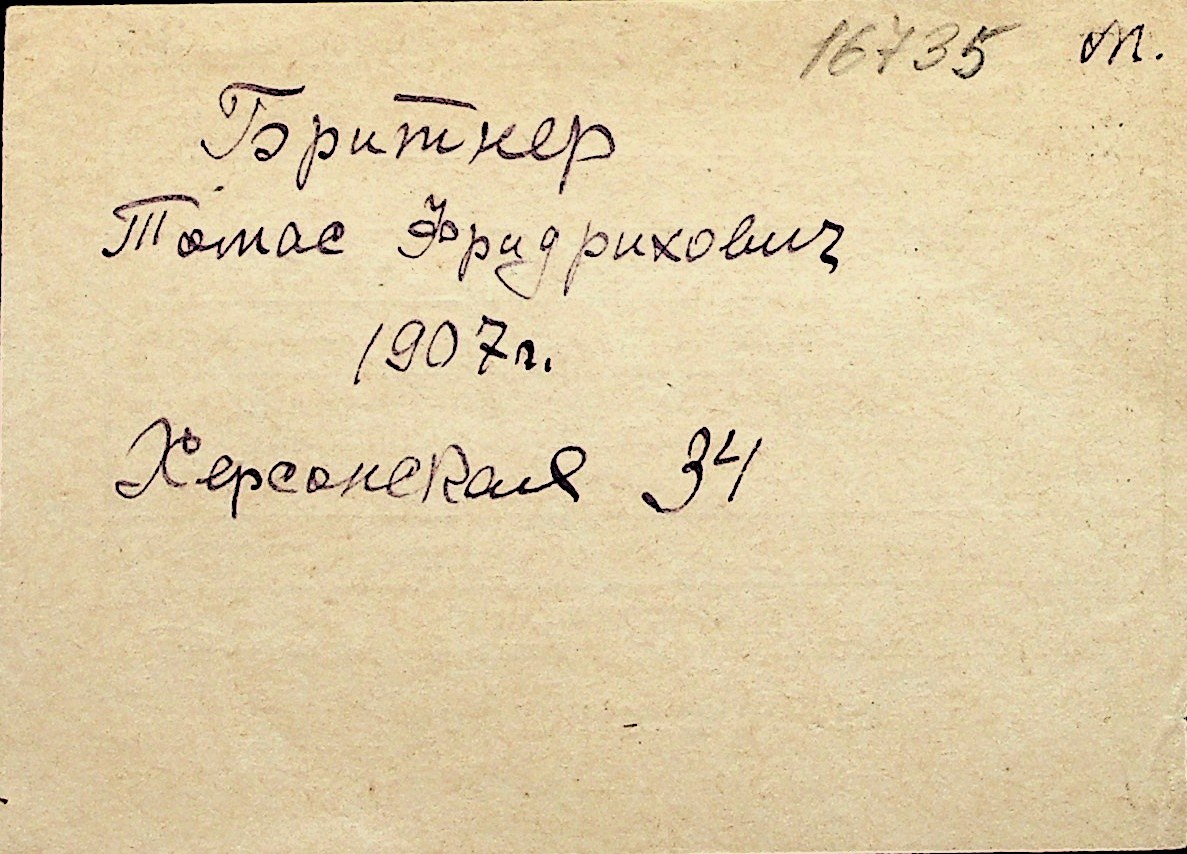 16735 т.
Бритнер
Томас Фридрихович
1907 г.
Херсонская 34